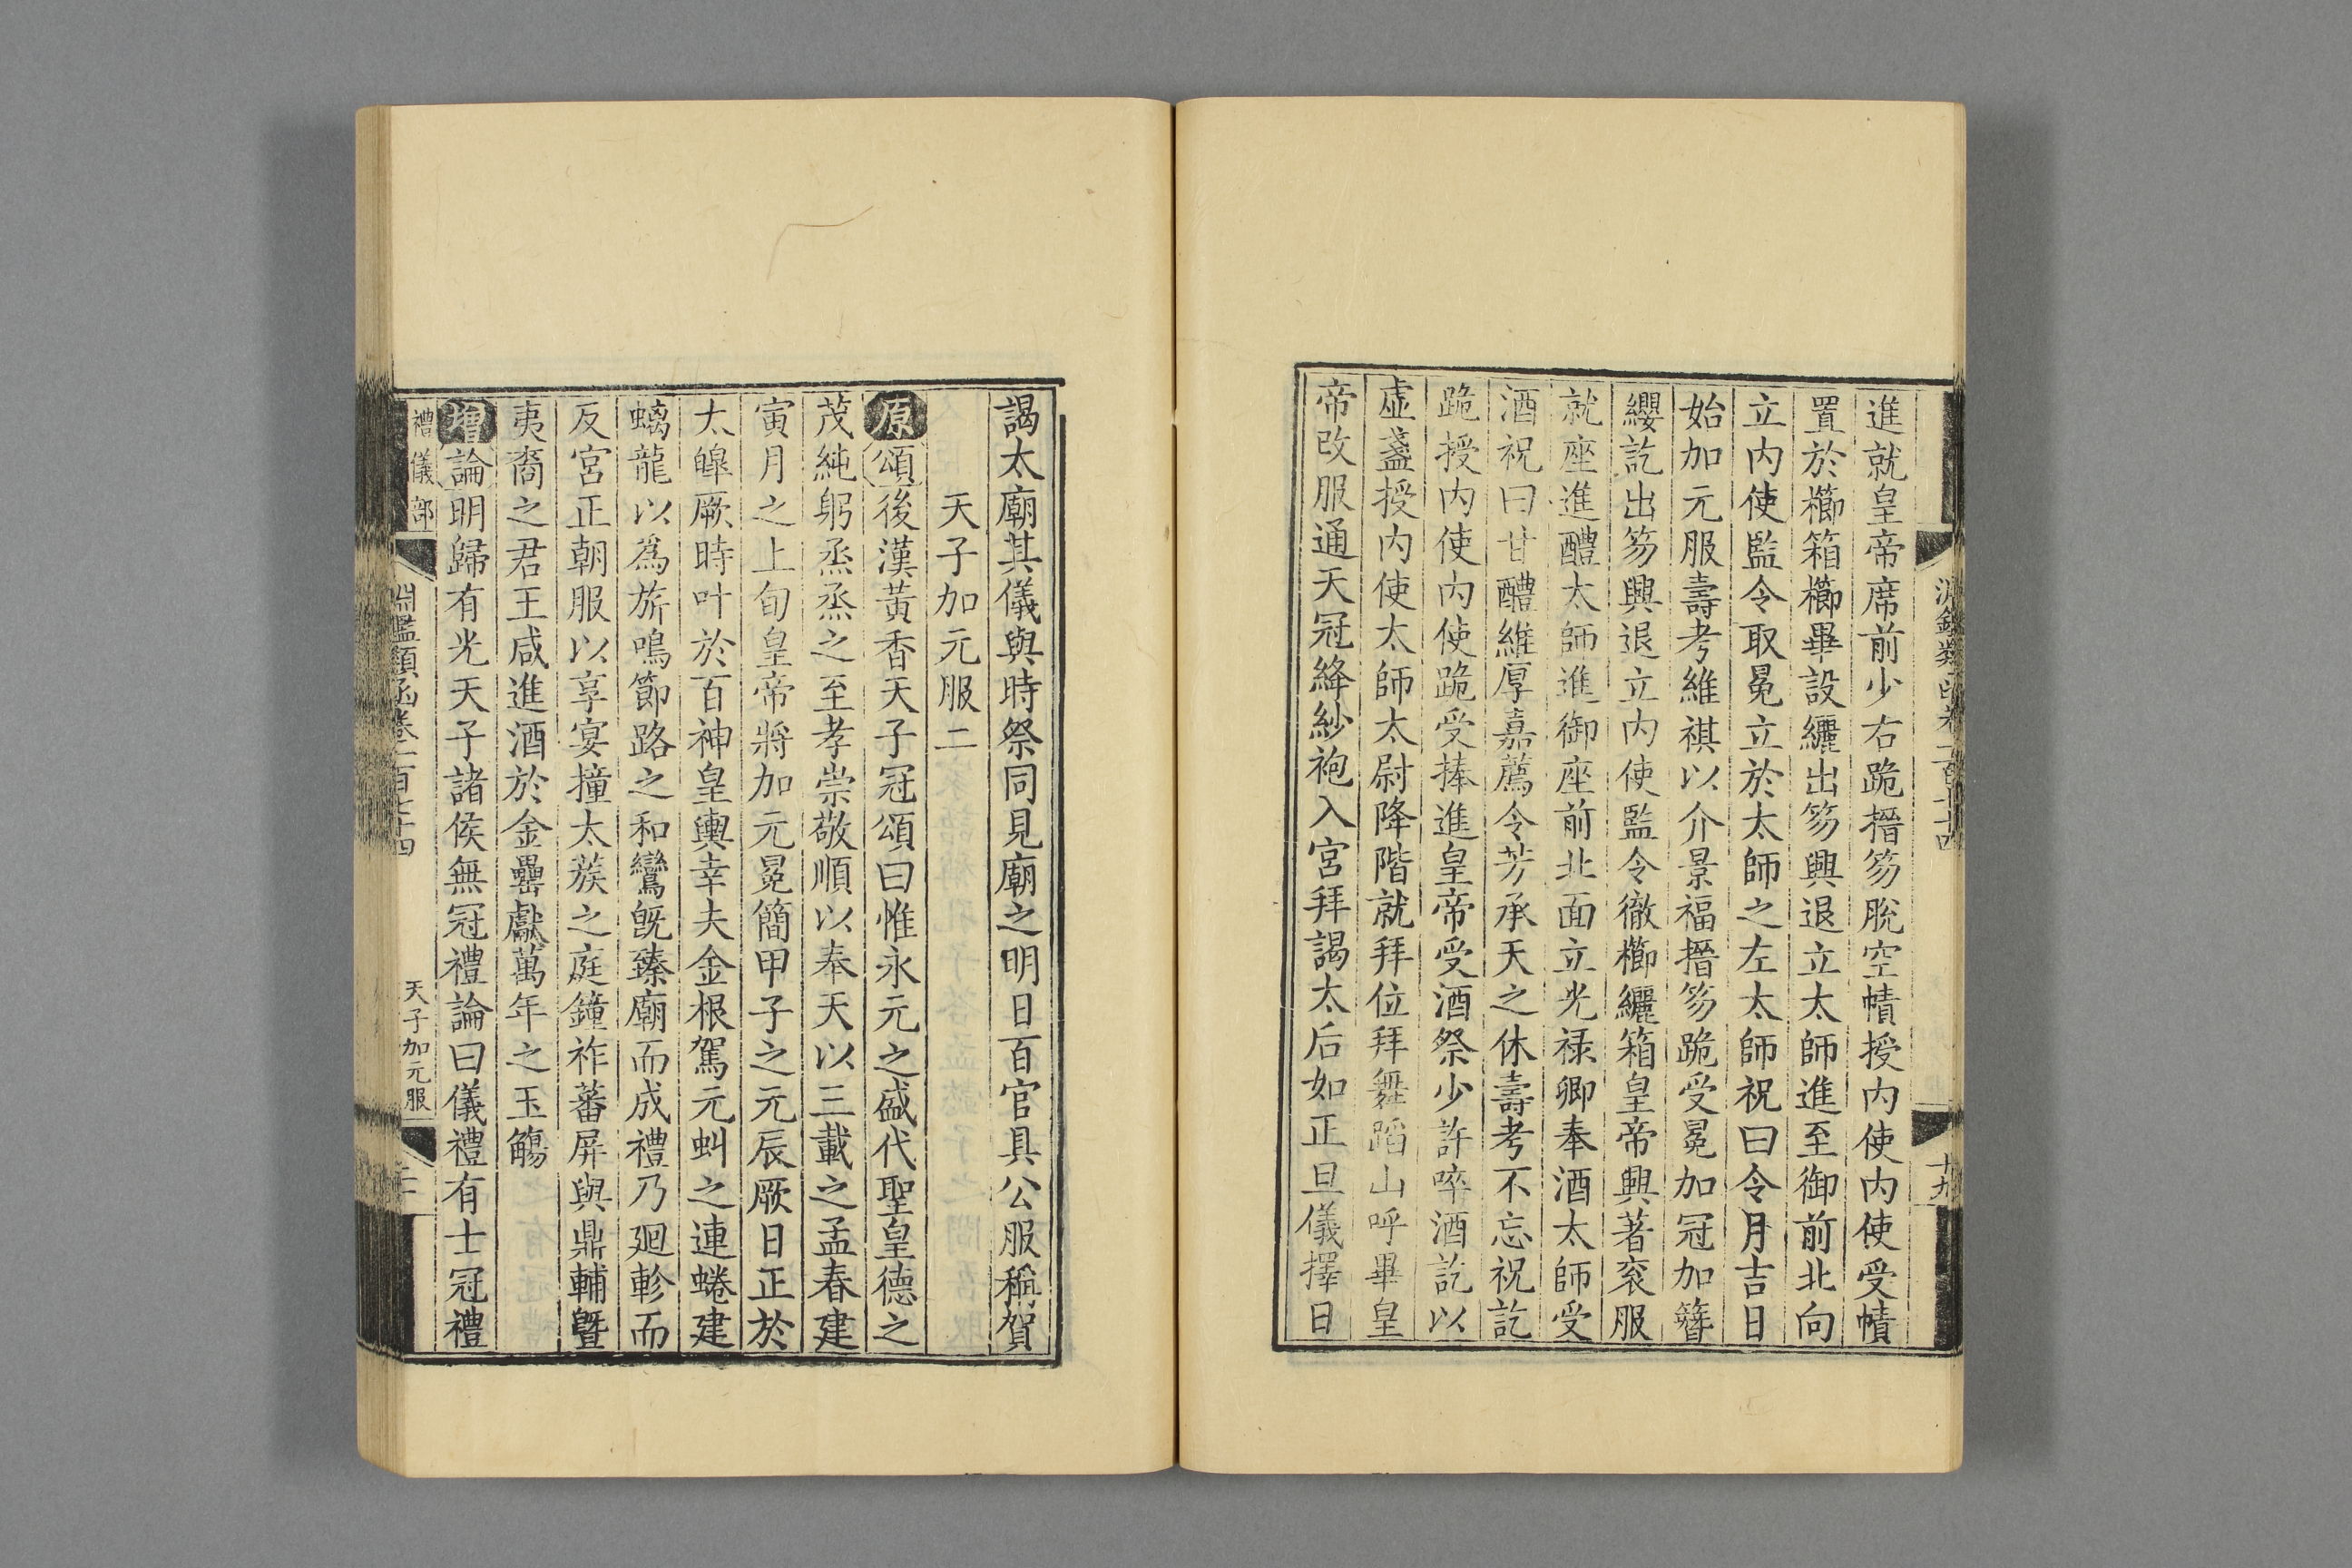 進就皇帝席前少右跪搢笏脫空幘授内使内使受幘
置於櫛箱櫛畢設纚出笏興退立太師進至御前北向
立内使監令取冕立於太師之左太師祝曰令月吉日
始加元服壽考維祺以介景福搢笏跪受冕加冠加簪
纓訖出笏興退立内使監令徹櫛纚箱皇帝興著衮服
就座進醴太師進御座前北面立光禄卿奉酒太師受
酒祝曰甘醴維厚嘉薦令芳承天之休壽考不忘祝訖
跪授内使内使跪受捧進皇帝受酒祭少許啐酒訖以
虚盞授内使太師太尉降階就拜位拜舞蹈山呼畢皇
帝改服通天冠絳紗袍入宮拜謁太后如正旦儀擇日
十九
謁太廟其儀與時祭同見廟之明日百官具公服稱賀
天子加元服二
原頌後漢黃香天子冠頌曰惟永元之盛代聖皇德之
茂純躬烝烝之至孝崇敬順以奉天以三載之孟春建
寅月之上旬皇帝將加元冕簡甲子之元辰厥日正於
太皥厥時叶於百神皇輿幸夫金根駕元虯之連蜷建
螭龍以爲旂鳴節路之和鸞旣臻廟而成禮乃廻軫而
反宮正朝服以享宴撞太蔟之庭鐘祚蕃屏與鼎輔曁
夷裔之君王咸進酒於金罍獻萬年之玉觴
增論明歸有光天子諸侯無冠禮論曰儀禮有士冠禮
禮儀部
淵鑑類函卷一百七十四
天子加元服